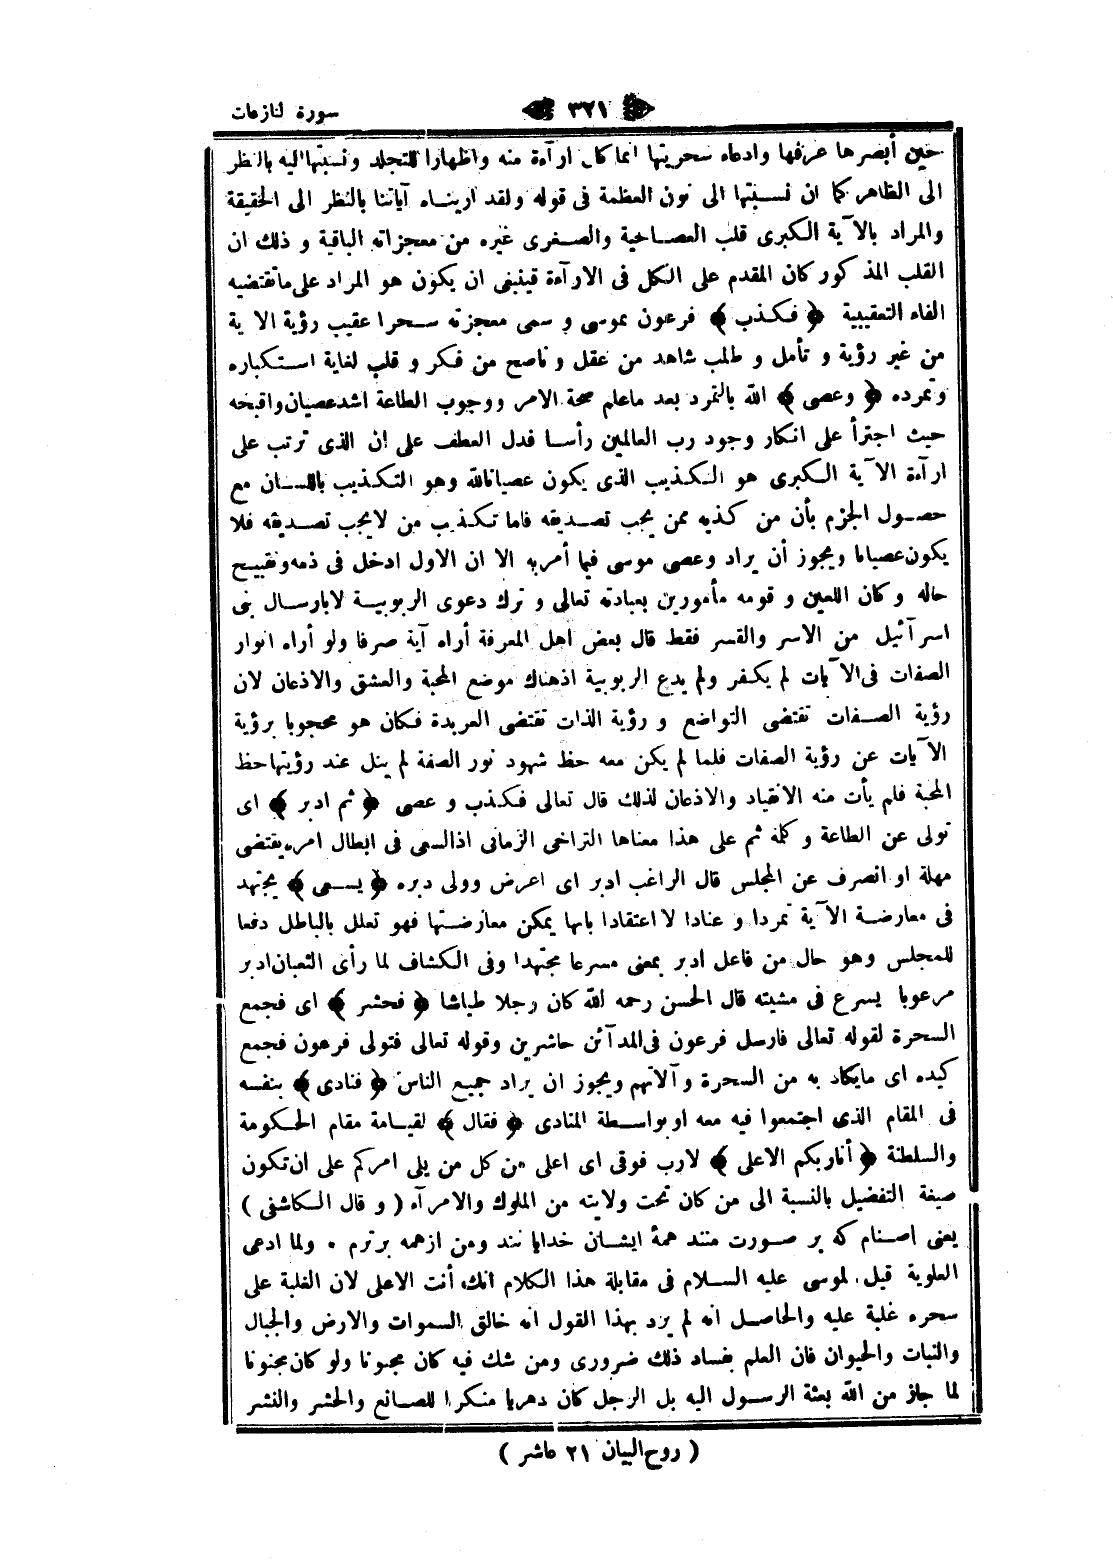 سورة لنازعات
٣٢١
حين أبصرها عرفها وادعاء سحريتها انما كان ارآءة منه واظهارا للتجلد ونسبتها اليه بالنظر
الى الظاهر كما ان نسبتها الى نون العظمة فى قوله ولقد اريناه آياتنا بالنظر الى الحقيقة
والمراد بالآية الكبرى قلب العصا حية والصغرى غيره من معجزاته الباقية و ذلك ان
القلب المذكور كان المقدم على الكل فى الارآءة فينبغى ان يكون هو المراد على ماتقتضيه
الفاء التعقيبية ﴿ فكذب ﴾ فرعون بموسى و سمى معجزته سحرا عقيب رؤية الآية
من غير رؤية و تأمل و طلب شاهد من عقل و ناصح من فكر و قلب لغاية استكباره
وتمرده ﴿ وعصى ﴾ الله بالتمرد بعد ماعلم صحة الامر ووجوب الطاعة اشد عصيان واقبحه
حيث اجترأ على انكار وجود رب العالمين رأسا فدل العطف على ان الذى ترتب على
ارآءة الآية الكبرى هو التكذيب الذى يكون عصيانا لله وهو التكذيب باللسان مع
حصول الجزم بأن من كذبه ممن يجب تصديقه فاما تكذيب من لايجب تصديقه فلا
يكون عصيانا ويجوز أن يراد وعصى موسى فيما أمر به الا ان الاول ادخل فى ذمه وتقبيح
حاله و كان اللعين و قومه مأمورين بعبادته تعالى و ترك دعوى الربوبية لا بارسال بنى
اسرآئيل من الاسر والقسر فقط قال بعض اهل المعرفة أراه آية صرفا ولو أراه انوار
الصفات فى الآيات لم يكفر ولم يدع الربوبية اذ هناك موضع المحبة والعشق والاذعان لان
رؤية الصفات تقتضى التواضع و رؤية الذات تقتضى العربدة فكان هو محجوبا برؤية
الآيات عن رؤية الصفات فلما لم يكن معه حظ شهود نور الصفة لم ينل عند رؤيتها حظ
المحبة فلم يأت منه الانقياد والاذعان لذلك قال تعالى فكذب و عصى ﴿ ثم ادبر ﴾ اى
تولى عن الطاعة و كلمة ثم على هذا معناها التراخى الزمانى اذ السعى فى ابطال امره يقتضى
مهلة او انصرف عن المجلس قال الراغب ادبر اى اعرض وولى دبره ﴿ يسعى ﴾ يجتهد
فى معارضة الآية تمردا و عنادا لا اعتقادا بانها يمكن معارضتها فهو تعلل بالباطل دفعا
للمجلس وهو حال من فاعل ادبر بمعنى مسرعا مجتهدا وفى الكشاف لما رأى الثعبان ادبر
مرعوبا يسرع فى مشيته قال الحسن رحمه الله كان رجلا طياشا ﴿ فحشر ﴾ اى فجمع
السحرة لقوله تعالى فارسل فرعون فى المدآئن حاشرين وقوله تعالى فتولى فرعون فجمع
كيده اى مايكاد به من السحرة و آلاتهم ويجوز ان يراد جميع الناس ﴿ فنادى ﴾ بنفسه
فى المقام الذى اجتمعوا فيه معه او بواسطة المنادى ﴿ فقال ﴾ لقيامة مقام الحكومة
والسلطنة ﴿ أنا ربكم الاعلى ﴾ لارب فوقى اى اعلى من كل من يلى امركم على ان تكون
صيغة التفضيل بالنسبة الى من كان تحت ولايته من الملوك والامرآء ( و قال الكاشفى )
يعنى اصنام كه بر صورت منند همهٔ ايشان خدايا نند ومن از همه برترم . ولما ادعى
العلوية قيل لموسى عليه السلام فى مقابلة هذا الكلام انك أنت الاعلى لان الغلبة على
سحره غلبة عليه والحاصل انه لم يرد بهذا القول انه خالق السموات والارض والجبال
والنبات والحيوان فان العلم بفساد ذلك ضرورى ومن شك فيه كان مجنونا ولو كان مجنونا
لما جاز من الله بعثة الرسول اليه بل الرجل كان دهريا منكرا للصانع والحشر والنشر
( روح البيان ٢١ عاشر )